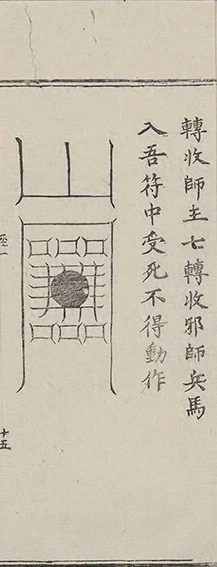 轉收師主七轉收邪師兵馬
入吾符中受死不得動作
十五